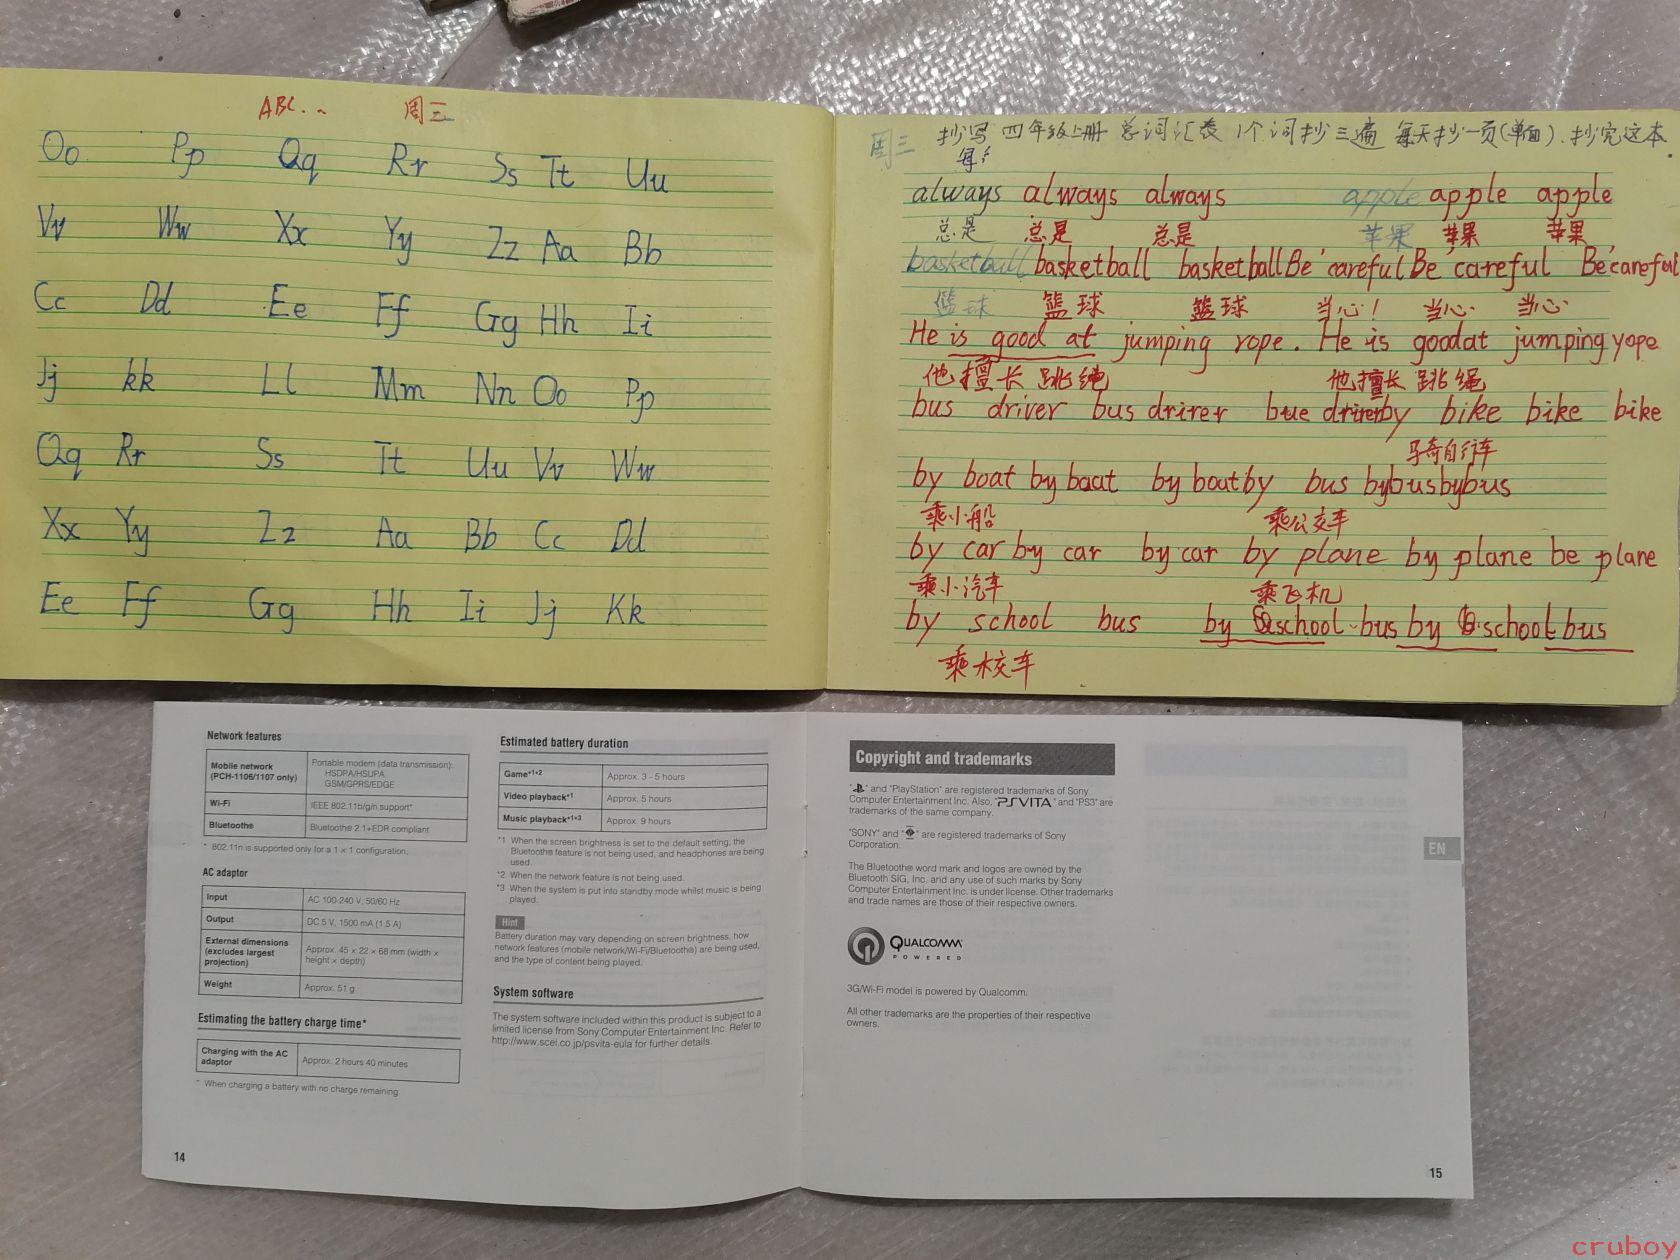 ABC... 周三
Oo Pp Qq Rr Ss Tt Uu
Vv Ww Xx Yy Zz Aa Bb
Cc Dd Ee Ff Gg Hh Ii
Jj kk Ll Mm Nn Oo Pp
Qq Rr Ss Tt Uu Vv Ww
Xx Yy Zz Aa Bb Cc Dd
Ee Ff Gg Hh Ii Jj Kk
周三 抄写 四年级上册 总词汇表 1个词抄三遍 每天抄一页(单面).抄完这本.
每
always always always apple apple apple
总是 总是 总是 苹果 苹果 苹果
basketball basketball basketball Be careful Be careful Be careful
篮球 篮球 篮球 当心! 当心. 当心.
He is good at jumping rope. He is goodat jumping yope
他擅长跳绳 他擅长跳绳
bus driver bus drirer bue drirer by bike bike bike
骑自行车
by boat by baat by boat by bus by bus by bus
乘小船 乘公交车
by car by car by car by plane by plane be plane
乘小汽车 乘飞机
by school bus by school bus by school bus
乘校车
Network features
Mobile network (PCH-1106/1107 only) Portable modem (data transmission):
HSDPA/HSUPA
GSM/GPRS/EDGE
Wi-Fi IEEE 802.11b/g/n support*
Bluetooth® Bluetooth® 2.1+EDR compliant
* 802.11n is supported only for a 1 × 1 configuration.
AC adaptor
Input AC 100-240 V, 50/60 Hz
Output DC 5 V, 1500 mA (1.5 A)
External dimensions
(excludes largest projection) Approx. 45 × 22 × 68 mm (width × height × depth)
Weight Approx. 51 g
Estimating the battery charge time*
Charging with the AC adaptor Approx. 2 hours 40 minutes
* When charging a battery with no charge remaining.
14
Estimated battery duration
Game*1*2 Approx. 3 - 5 hours
Video playback*1 Approx. 5 hours
Music playback*1*3 Approx. 9 hours
*1 When the screen brightness is set to the default setting, the
Bluetooth® feature is not being used, and headphones are being
used.
*2 When the network feature is not being used.
*3 When the system is put into standby mode whilst music is being
played.
Hint
Battery duration may vary depending on screen brightness, how
network features (mobile network/Wi-Fi/Bluetooth®) are being used,
and the type of content being played.
System software
The system software included within this product is subject to a
limited license from Sony Computer Entertainment Inc. Refer to
http://www.scei.co.jp/psvita-eula for further details.
Copyright and trademarks
" " and "PlayStation" are registered trademarks of Sony
Computer Entertainment Inc. Also, "PSVITA" and "PS3" are
trademarks of the same company.
"SONY" and " " are registered trademarks of Sony
Corporation.
The Bluetooth® word mark and logos are owned by the
Bluetooth SIG, Inc. and any use of such marks by Sony
Computer Entertainment Inc. is under license. Other trademarks
and trade names are those of their respective owners.
QUALCOMM
POWERED
3G/Wi-Fi model is powered by Qualcomm.
All other trademarks are the properties of their respective
owners.
EN
15
cruboy